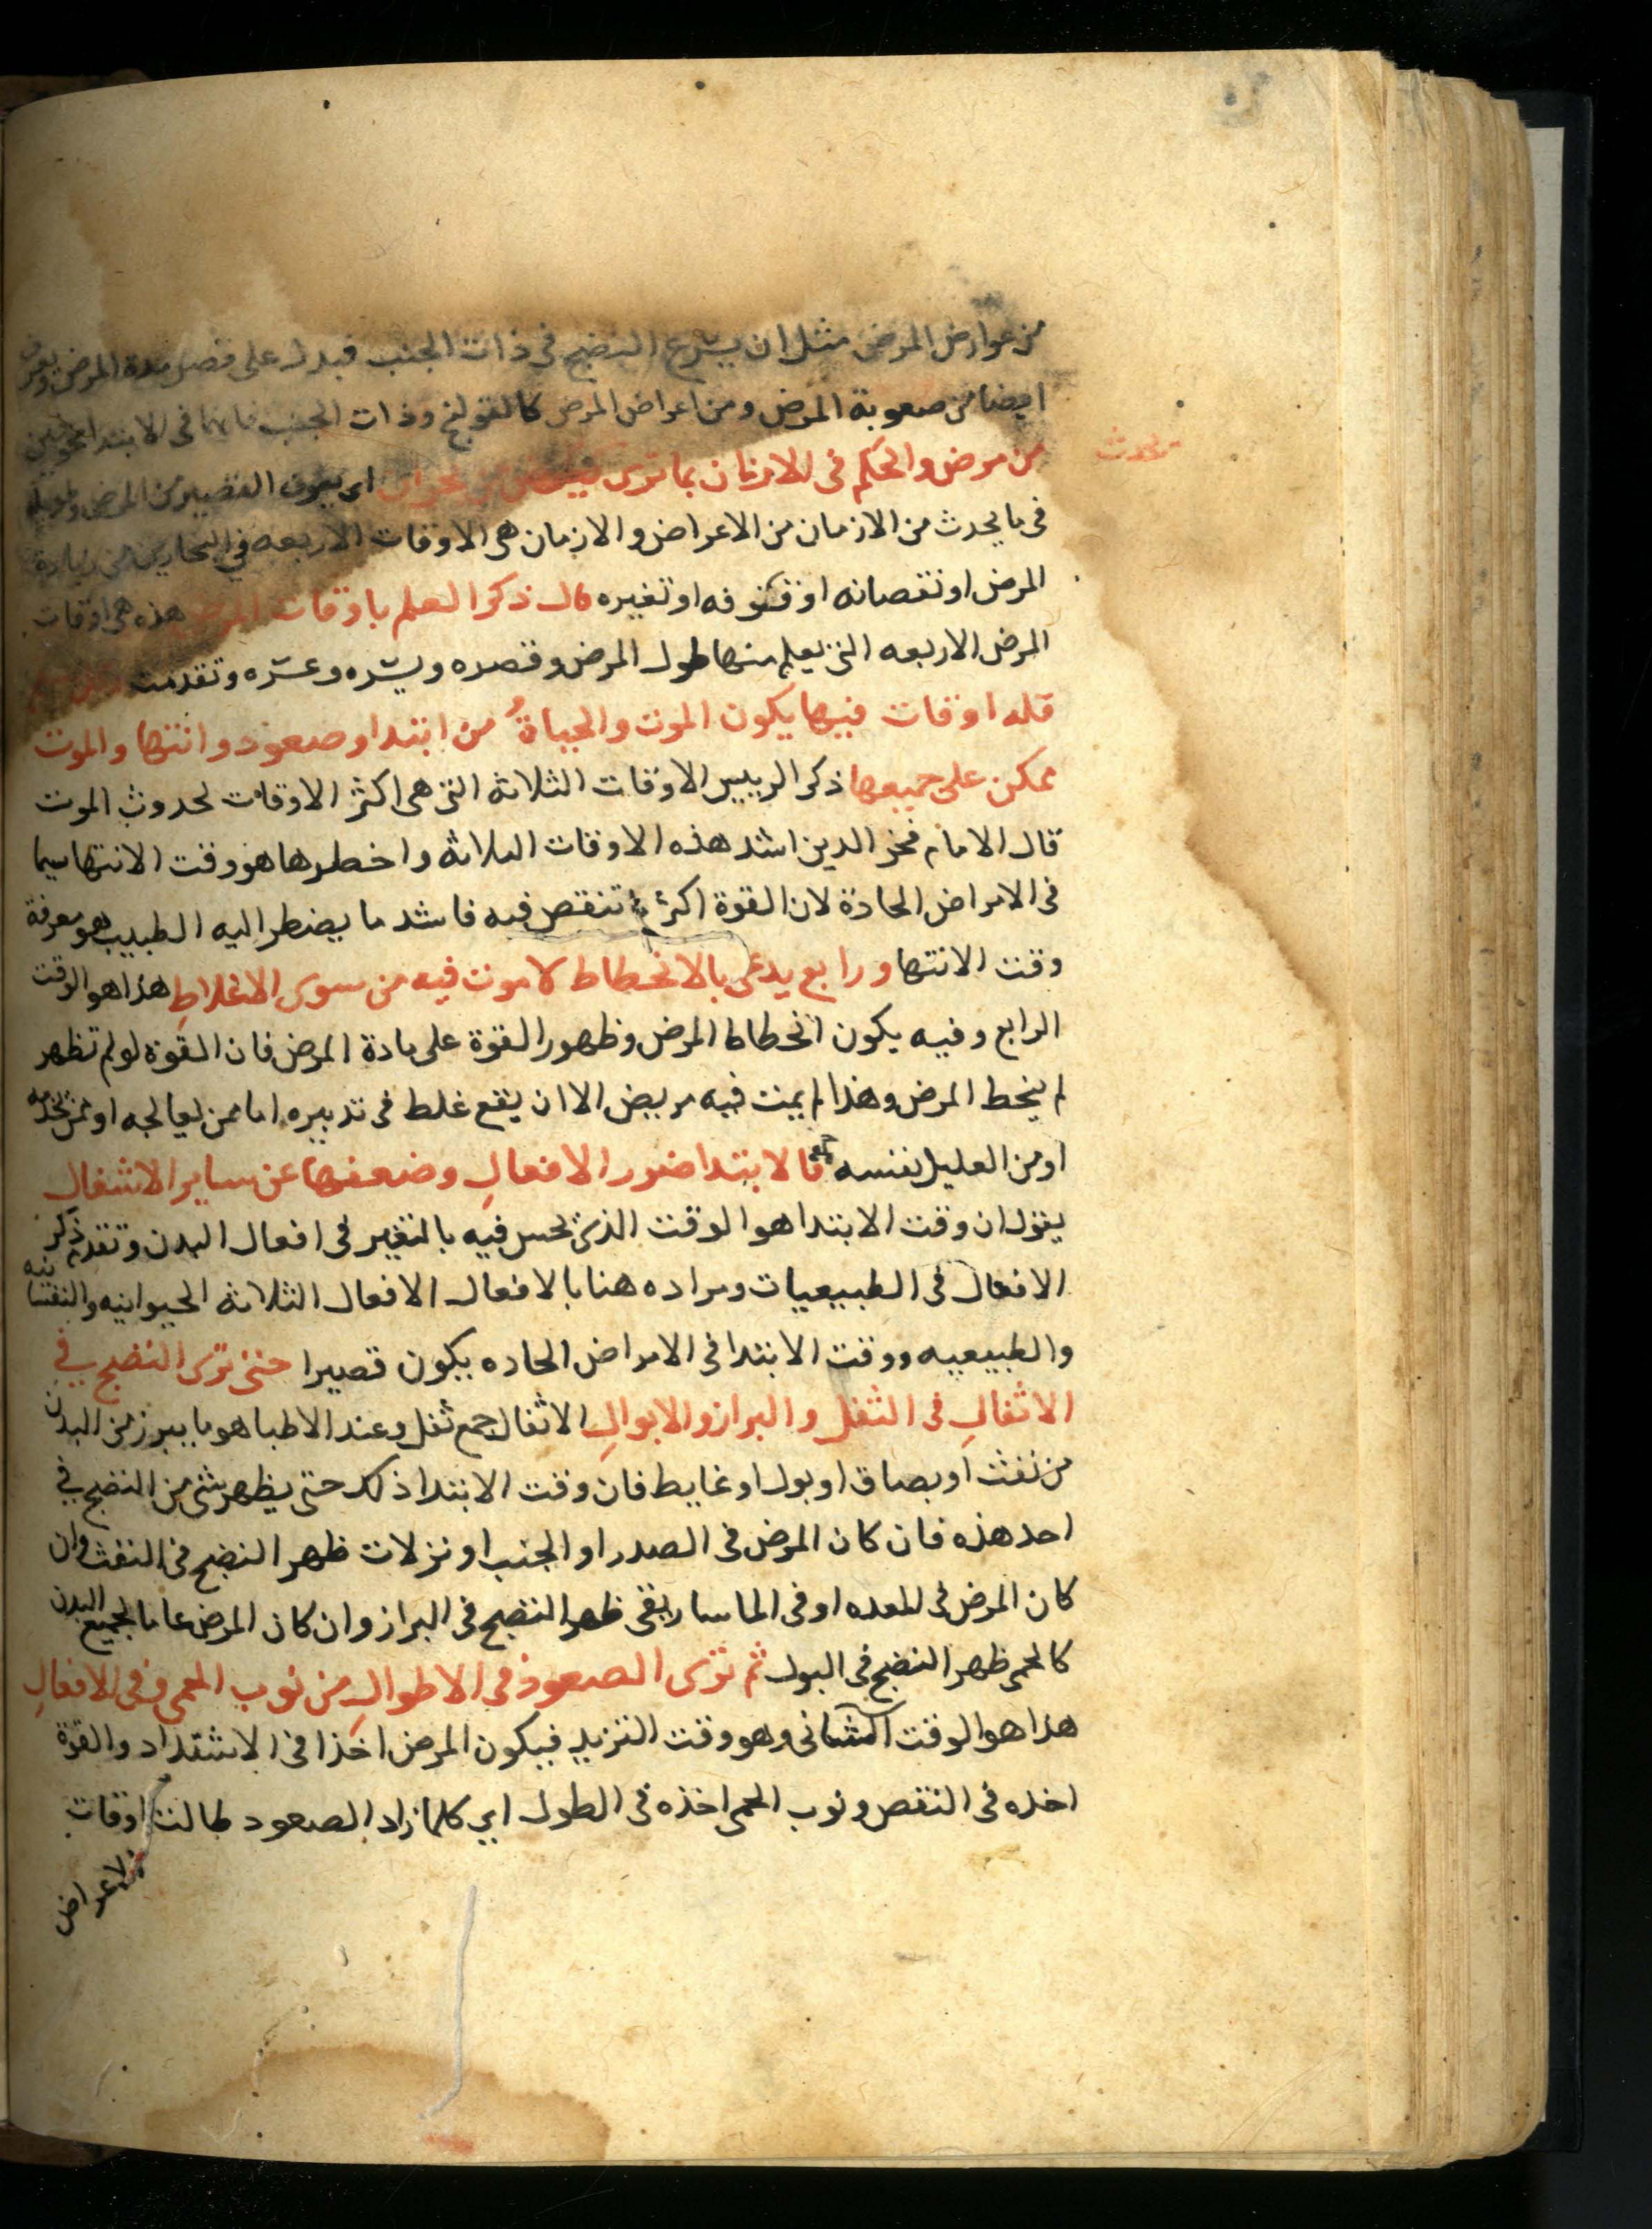 من عوارض المرض مثل ان يسرع النضج فى ذات الجنب فيدل على قصر مدة المرض
ايضا من صعوبة المرض ومن اعراض المرض كالقولنج وذات الجنب فى الابتدا
من مرض والحكم فى الازمان بما ترى اى يعرف القصير من المرض وطويله
فى ما يحدث من الازمان من الاعراض والازمان هى الاوقات الاربعه فى من زيادة
المرض او نقصانه او وقوفه او تغيره قال ذكر العلم باوقات المرض هذه هى اوقات
المرض الاربعه التى يعلم منها طول المرض وقصره ويسره وعسره وتقدمت
فله اوقات فيها يكون الموت والحياة من ابتدا وصعود وانتها والموت
ممكن على جميعها ذكر الرييس الاوقات الثلاثه التى هى اكثر الاوقات لحدوث الموت
قال الامام فخر الدين اشد هذه الاوقات الثلاثه واخطرها هو وقت الانتها سيما
فى الامراض الحادة لان القوة اكثر تنقص فيه فاشد ما يضطر اليه الطبيب هو معرفة
وقت الانتها ورابع يدعى بالانحطاط لا موت فيه من سوى الاغلاطِ هذا هو الوقت
الرابع وفيه يكون انحطاط المرض وظهور القوة على مادة المرض فان القوة لو لم تظهر
لم ينحط المرض وهذا لم يمت فيه مريض الا ان يقع غلط فى تدبيره اما ممن يعالجه او ممن يخدمه
او من العليل نفسه فالابتدا ضرر الافعالِ وضعفها عن ساير الاشغال
يقول ان وقت الابتدا هو الوقت الذى يحس فيه بالتغير فى افعال البدن وتقدم ذكر
الافعال فى الطبيعيات ومراده هنا بالافعال الافعال الثلاثه الحيوانيه والنفسانيه
والطبيعيه ووقت الابتدا فى الامراض الحاده يكون قصيرا حتى ترى النضج فى
الاثفالِ فى الثفل والبراز والابوالِ الاثفال جمع ثفل وعند الاطبا هو ما يبرز من البدن
من نفث او بصاق او بول او غايط فان وقت الابتدا ذلك حتى يظهر شى من النضج فى
احد هذه فان كان المرض فى الصدر او الجنب او نزلات ظهر النضج فى النفث وان
كان المرض فى المعده او فى الماساريقى ظهر النضج فى البراز وان كان المرض عاما لجميع البدن
كالحمى ظهر النضج فى البول ثم ترى الصعود فى الاطوالِ من نوب الحمى وفى الافعالِ
هذا هو الوقت الثانى وهو وقت التزيد فيكون المرض اخذا فى الاشتداد والقوة
اخذه فى التنقص ونوب الحمى اخذه فى الطول اى كلما زاد الصعود طالت اوقات
الاعراض